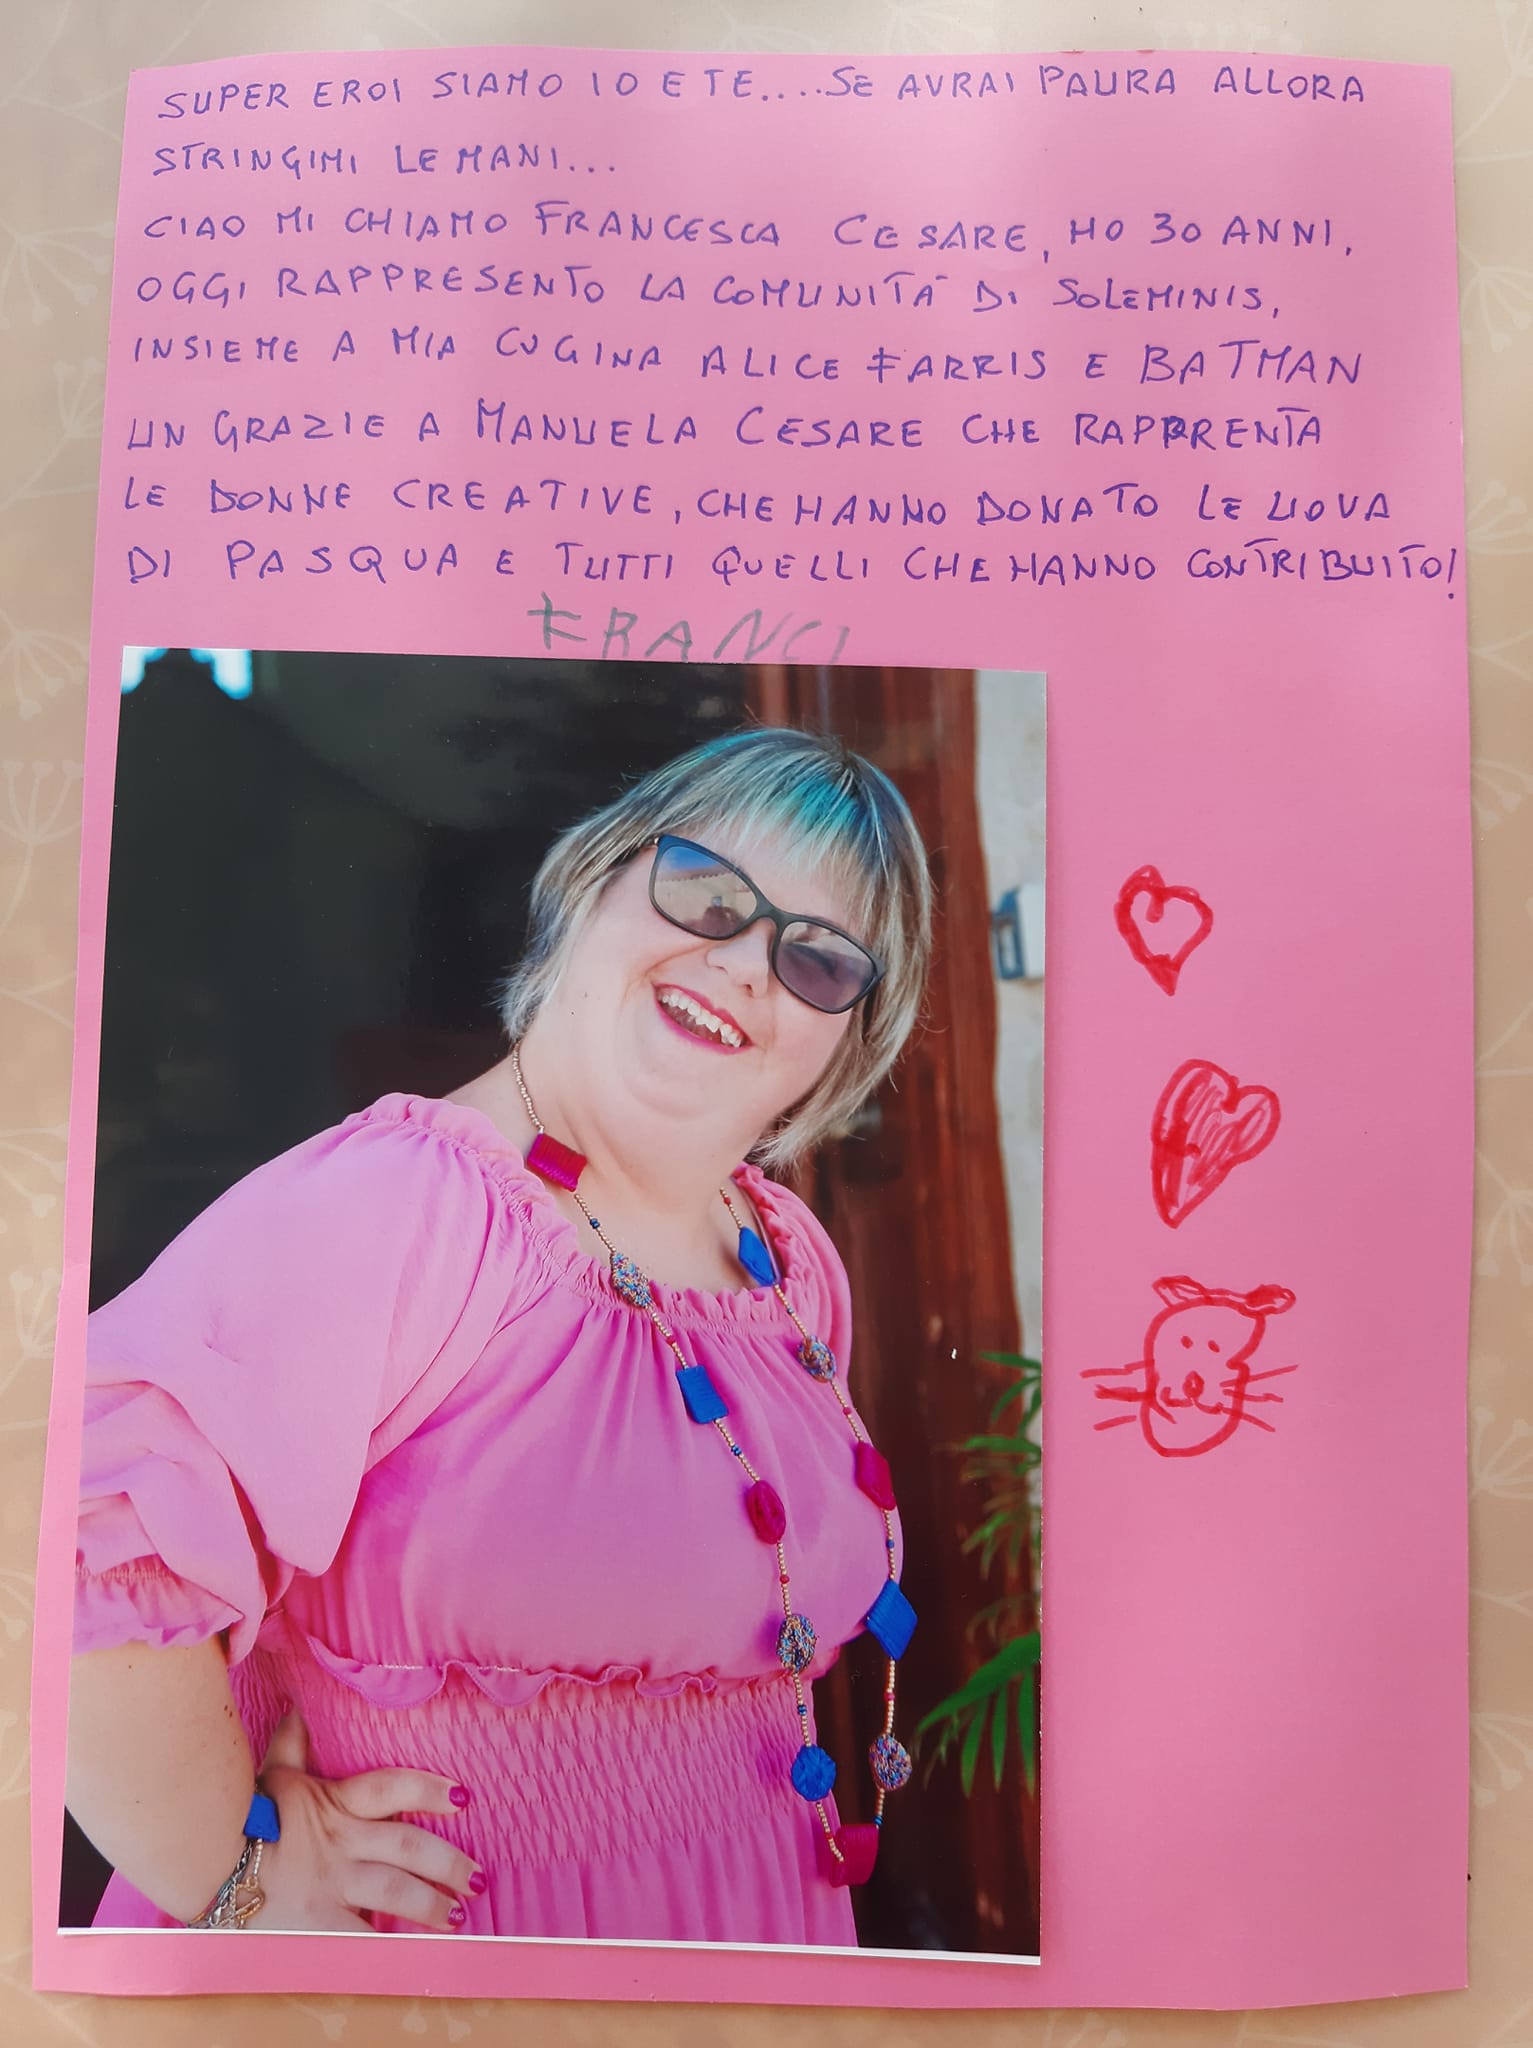 SUPER EROI SIAMO IO E TE....SE AVRAI PAURA ALLORA
STRINGIMI LE MANI...
CIAO MI CHIAMO FRANCESCA CESARE, HO 30 ANNI,
OGGI RAPPRESENTO LA COMUNITÀ DI SOLEMINIS,
INSIEME A MIA CUGINA ALICE FARRIS E BATMAN
UN GRAZIE A MANUELA CESARE CHE RAPPRENTA
LE DONNE CREATIVE, CHE HANNO DONATO LE UOVA
DI PASQUA E TUTTI QUELLI CHE HANNO CONTRIBUITO!
FRANCI